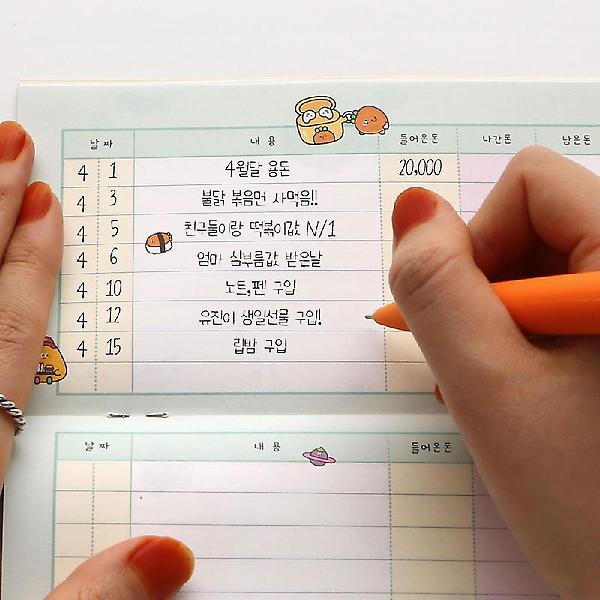 날 짜 내 용 들어온돈 나간돈 남은돈
4 1 4월달 용돈 20,000
4 3 불닭 볶음면 사먹음!!
4 5 친구들이랑 떡볶이값 N/1
4 6 엄마 심부름값 받은날
4 10 노트,펜 구입
4 12 유진이 생일선물 구입!
4 15 립밤 구입
날 짜 내 용 들어온돈